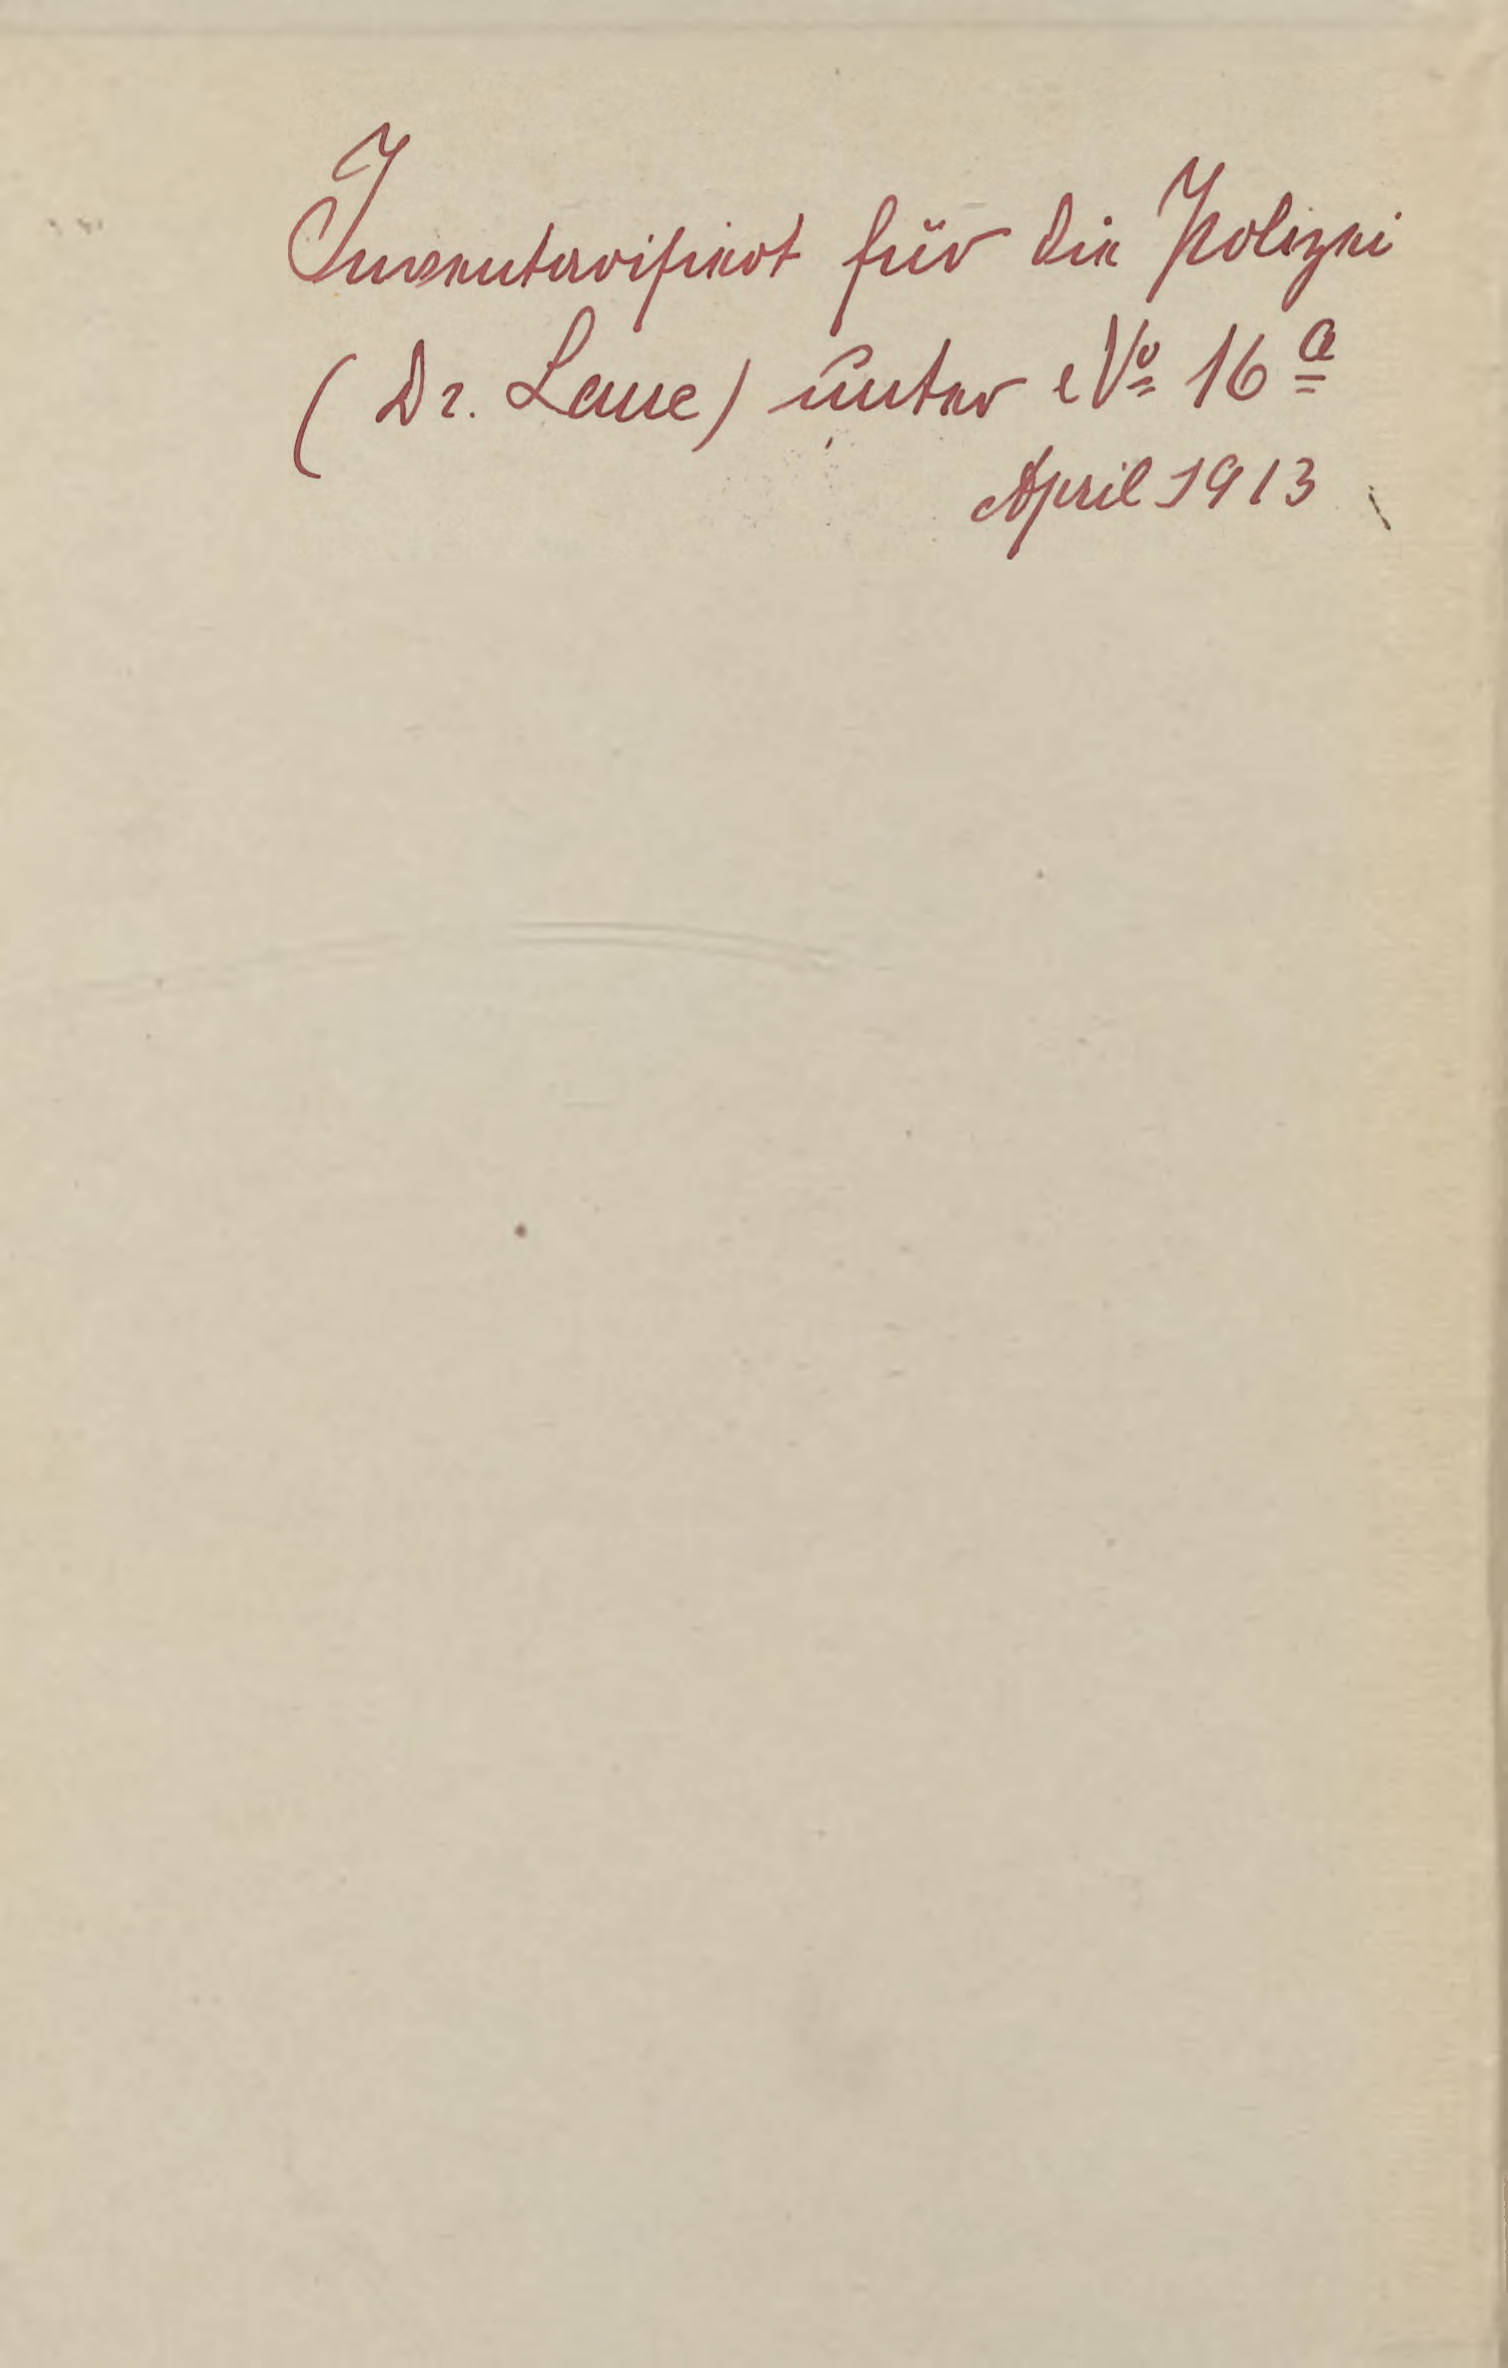 Inventarisiert für die Polizei
(Dr. Laue) unter No 16 a
April 1913